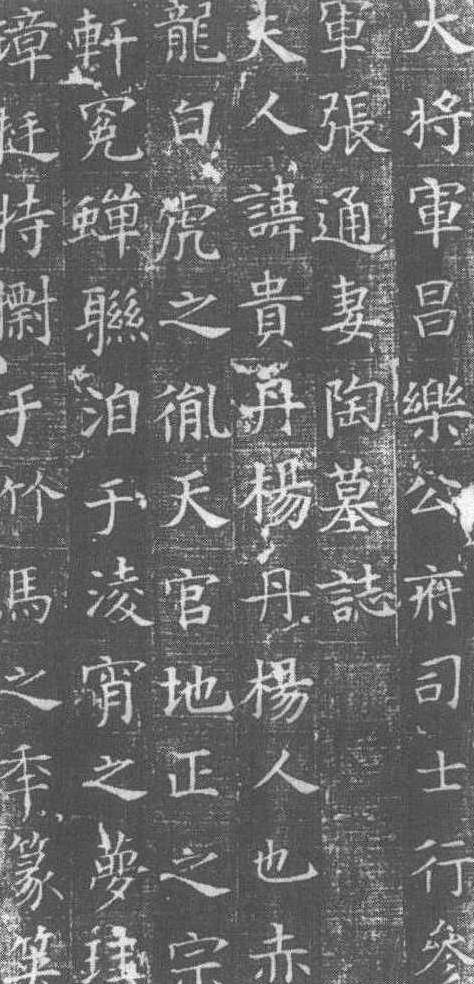 大將軍昌樂公府司士行參
軍張通妻陶墓誌
夫人諱貴丹楊丹楊人也赤
龍白虎之胤天官地正之宗
軒冕蟬聯洎于淩霄之夢珪
璋挺特𣝔于竹馬之季篆